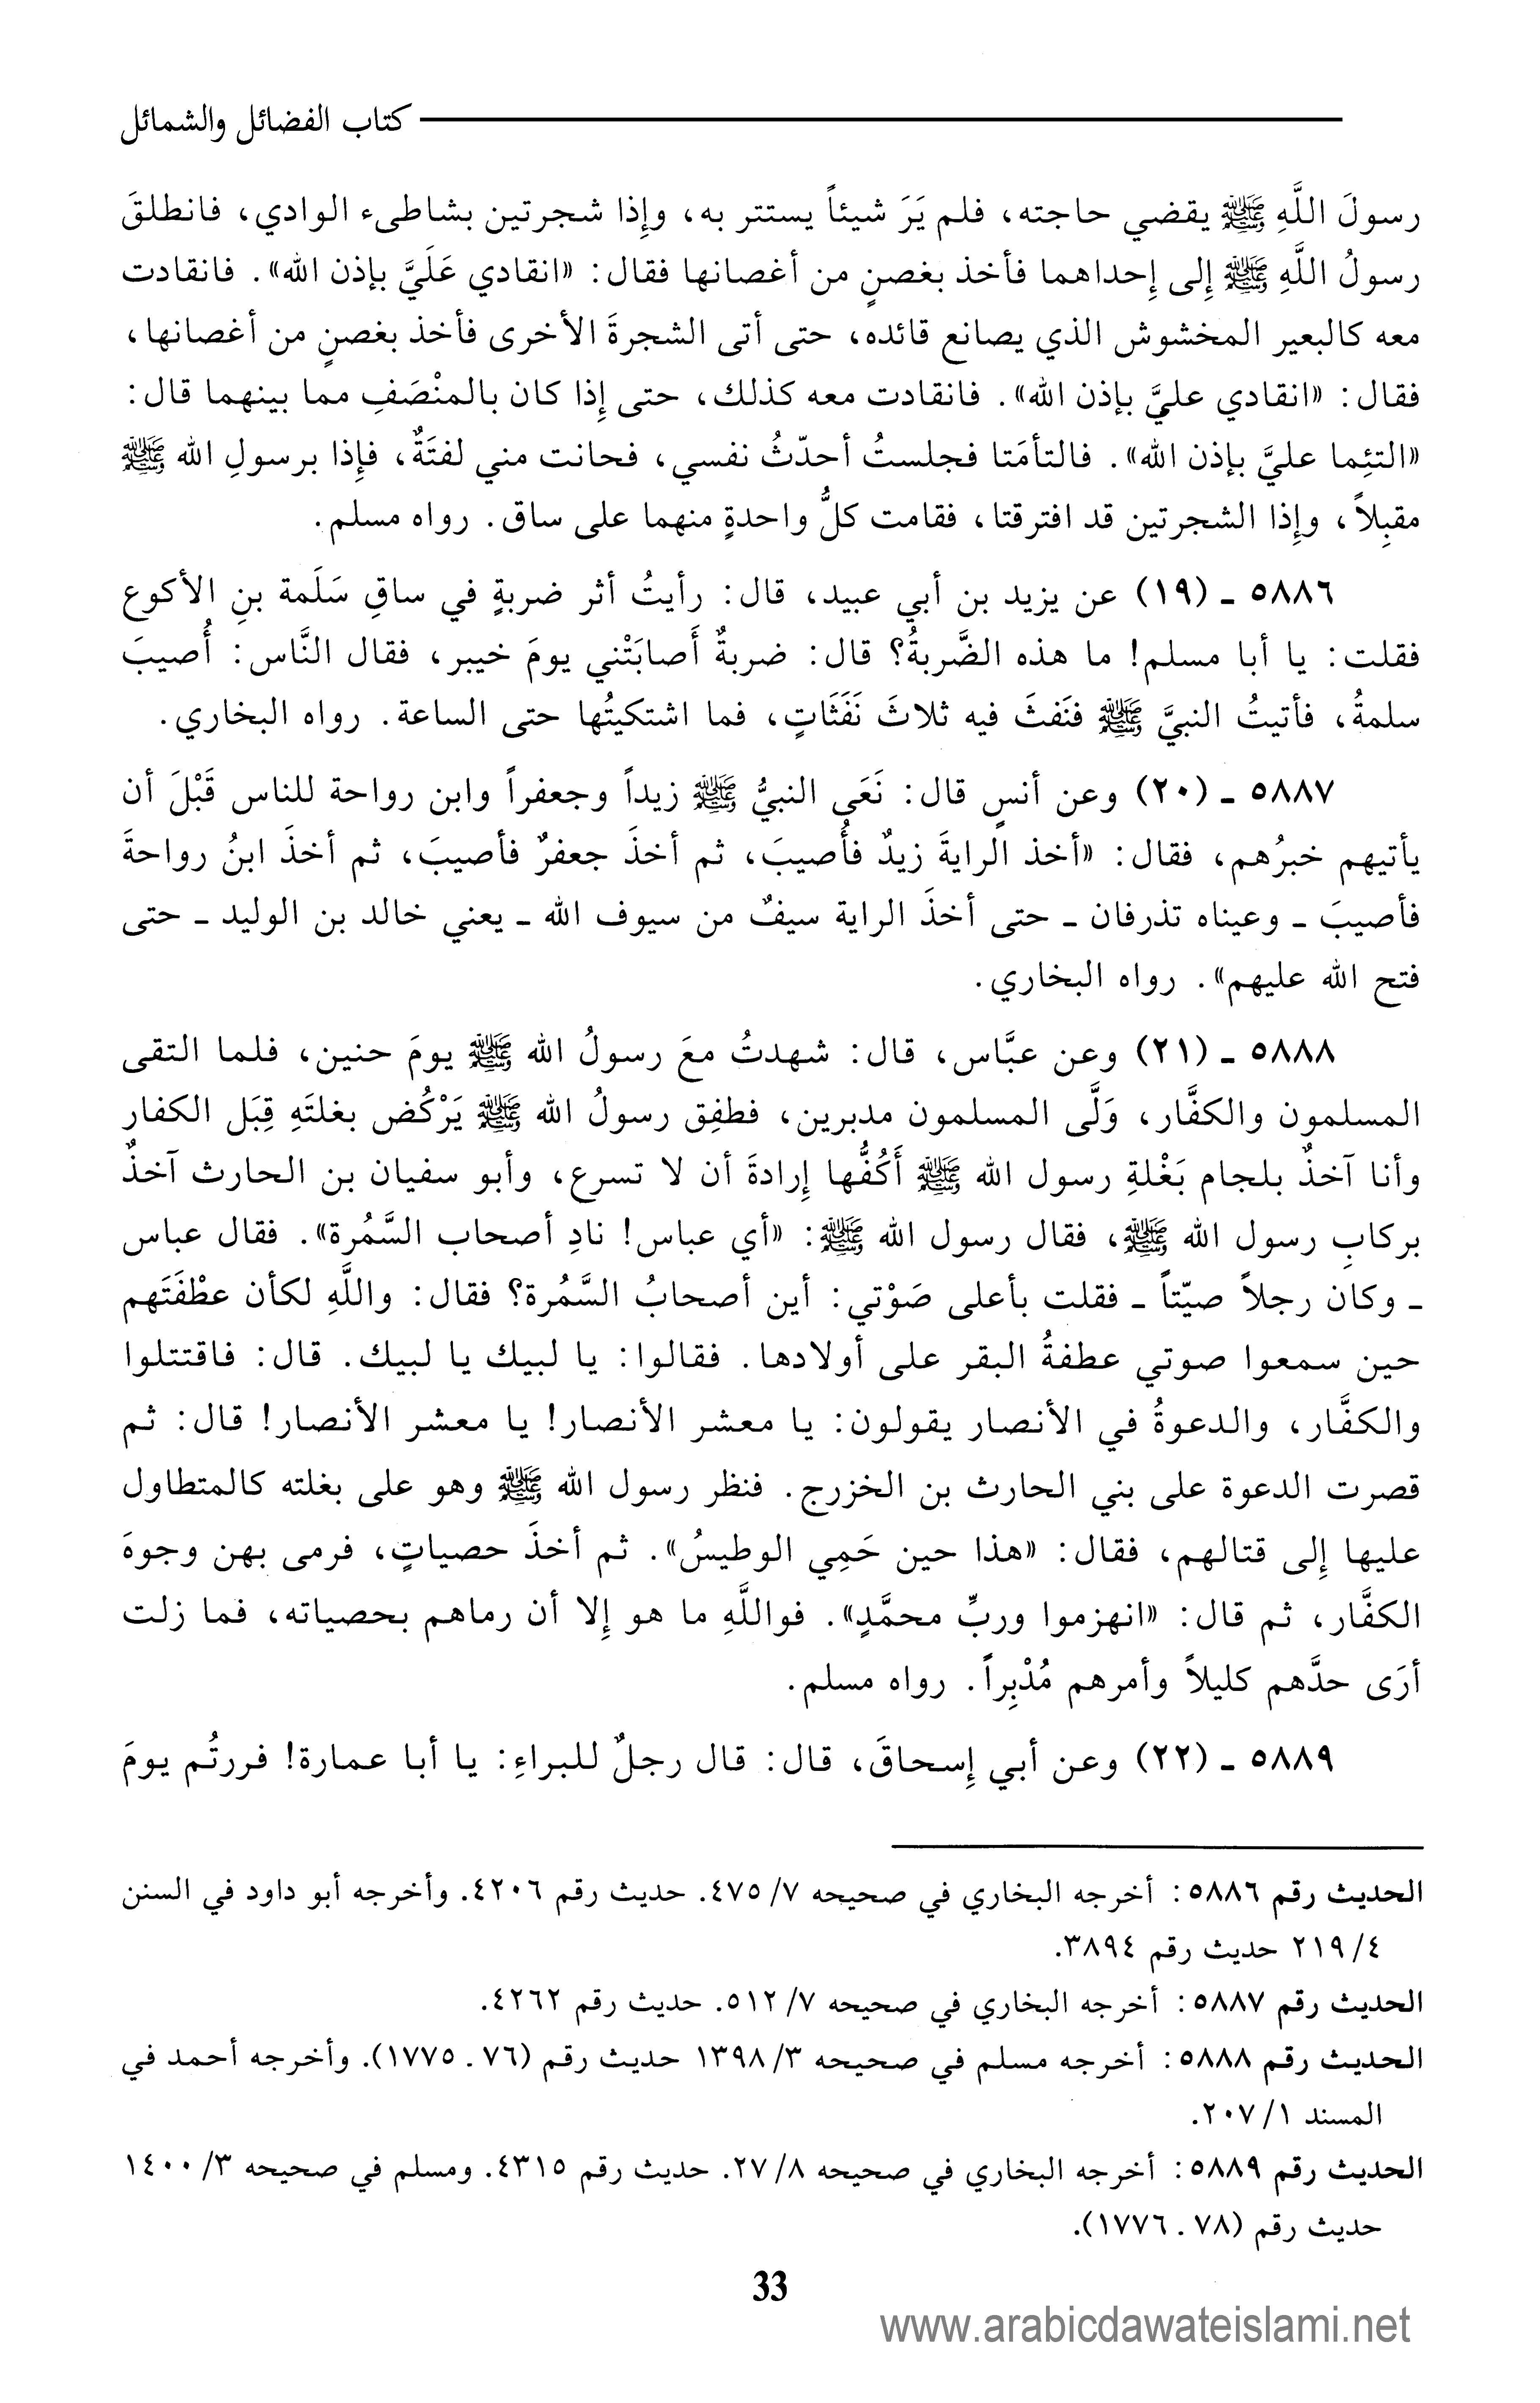 كتاب الفضائل والشمائل
رسولَ اللَّهِ ﷺ يقضي حاجته، فلم يَرَ شيئاً يستتر به، وإِذا شجرتين بشاطىء الوادي، فانطلقَ
رسولُ اللَّهِ ﷺ إِلى إِحداهما فأخذ بغصنٍ من أغصانها فقال: «انقادي عَلَيَّ بإذن الله». فانقادت
معه كالبعير المخشوش الذي يصانع قائده، حتى أتى الشجرةَ الأخرى فأخذ بغصنٍ من أغصانها،
فقال: «انقادي عليَّ بإذن الله». فانقادت معه كذلك، حتى إِذا كان بالمنْصَفِ مما بينهما قال:
«التئِما عليَّ بإذن الله». فالتأمَتا فجلستُ أحدّثُ نفسي، فحانت مني لفتَةٌ، فإِذا برسولِ الله ﷺ
مقبِلاً، وإِذا الشجرتين قد افترقتا، فقامت كلُّ واحدةٍ منهما على ساق. رواه مسلم.
٥٨٨٦ ـ (١٩) عن يزيد بن أبي عبيد، قال: رأيتُ أثر ضربةٍ في ساقِ سَلَمة بنِ الأكوع
فقلت: يا أبا مسلم! ما هذه الضَّربةُ؟ قال: ضربةٌ أَصابَتْني يومَ خيبر، فقال النَّاس: أُصيبَ
سلمةُ، فأتيتُ النبيَّ ﷺ فنَفثَ فيه ثلاثَ نَفَثَاتٍ، فما اشتكيتُها حتى الساعة. رواه البخاري.
٥٨٨٧ ـ (٢٠) وعن أنسٍ قال: نَعَى النبيُّ ﷺ زيداً وجعفراً وابن رواحة للناس قَبْلَ أن
يأتيهم خبرُهم، فقال: «أخذ الرايةَ زيدٌ فأُصيبَ، ثم أخذَ جعفرٌ فأصيبَ، ثم أخذَ ابنُ رواحةَ
فأصيبَ ـ وعيناه تذرفان ـ حتى أخذَ الراية سيفٌ من سيوف الله ـ يعني خالد بن الوليد ـ حتى
فتح الله عليهم». رواه البخاري.
٥٨٨٨ ـ (٢١) وعن عبَّاس، قال: شهدتُ معَ رسولُ الله ﷺ يومَ حنين، فلما التقى
المسلمون والكفَّار، وَلَّى المسلمون مدبرين، فطفِق رسولُ الله ﷺ يَرْكُض بغلتَهِ قِبَل الكفار
وأنا آخذٌ بلجام بَغْلةِ رسول الله ﷺ أَكُفُّها إِرادةَ أن لا تسرع، وأبو سفيان بن الحارث آخذٌ
بركابِ رسول الله ﷺ، فقال رسول الله ﷺ: «أي عباس! نادِ أصحاب السَّمُرة». فقال عباس
ـ وكان رجلاً صيّتاً ـ فقلت بأعلى صَوْتي: أين أصحابُ السَّمُرة؟ فقال: واللَّهِ لكأن عطْفَتَهم
حين سمعوا صوتي عطفةُ البقر على أولادها. فقالوا: يا لبيك يا لبيك. قال: فاقتتلوا
والكفَّار، والدعوةُ في الأنصار يقولون: يا معشر الأنصار! يا معشر الأنصار! قال: ثم
قصرت الدعوة على بني الحارث بن الخزرج. فنظر رسول الله ﷺ وهو على بغلته كالمتطاول
عليها إِلى قتالهم، فقال: «هذا حين حَمِي الوطيسُ». ثم أخذَ حصياتٍ، فرمى بهن وجوهَ
الكفَّار، ثم قال: «انهزموا وربِّ محمَّدٍ». فواللَّهِ ما هو إِلا أن رماهم بحصياته، فما زلت
أرَى حدَّهم كليلاً وأمرهم مُدْبِراً. رواه مسلم.
٥٨٨٩ ـ (٢٢) وعن أبي إِسحاقَ، قال: قال رجلٌ للبراءِ: يا أبا عمارة! فررتُم يومَ
الحديث رقم ٥٨٨٦: أخرجه البخاري في صحيحه ٤٧٥/٧. حديث رقم ٤٢٠٦. وأخرجه أبو داود في السنن
٢١٩/٤ حديث رقم ٣٨٩٤.
الحديث رقم ٥٨٨٧: أخرجه البخاري في صحيحه ٥١٢/٧. حديث رقم ٤٢٦٢.
الحديث رقم ٥٨٨٨: أخرجه مسلم في صحيحه ١٣٩٨/٣ حديث رقم (٧٦ ـ ١٧٧٥). وأخرجه أحمد في
المسند ٢٠٧/١.
الحديث رقم ٥٨٨٩: أخرجه البخاري في صحيحه ٢٧/٨. حديث رقم ٤٣١٥. ومسلم في صحيحه ١٤٠٠/٣
حديث رقم (٧٨ ـ ١٧٧٦).
33
www.arabicdawateislami.net